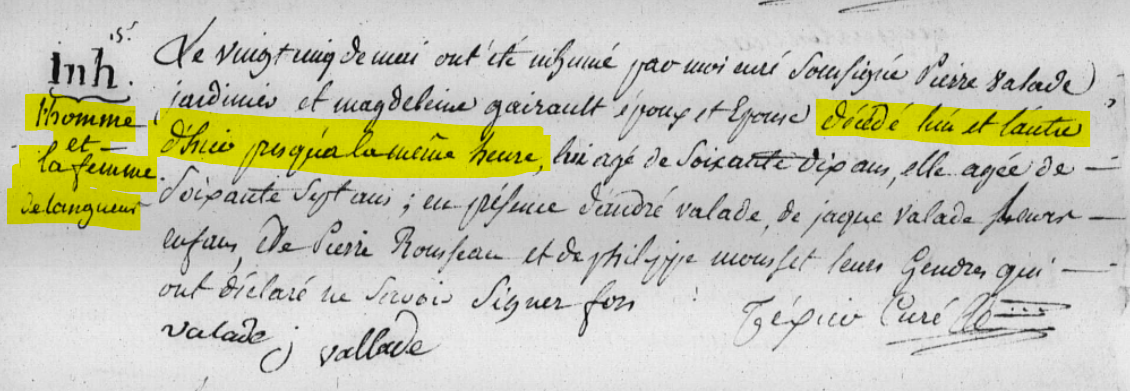 15.
inh.
l'homme
et
la femme
de langueur
Le vingt cinq de mai ont été inhumé par moi curé soussigné Pierre valade
jardinier et magdeleine gairault époux et Epouse décédé l'un et l'autre
d'hier presqu'a la même heure, lui agé de soixante dix ans, elle agée de
soixante sept ans ; en présence d'andré valade, de jaque valade leurs
enfans, de Pierre Rousseau et de philippe mousset leurs Gendres qui
ont déclaré ne savoir signer fors
valade j vallade
Téxier Curé